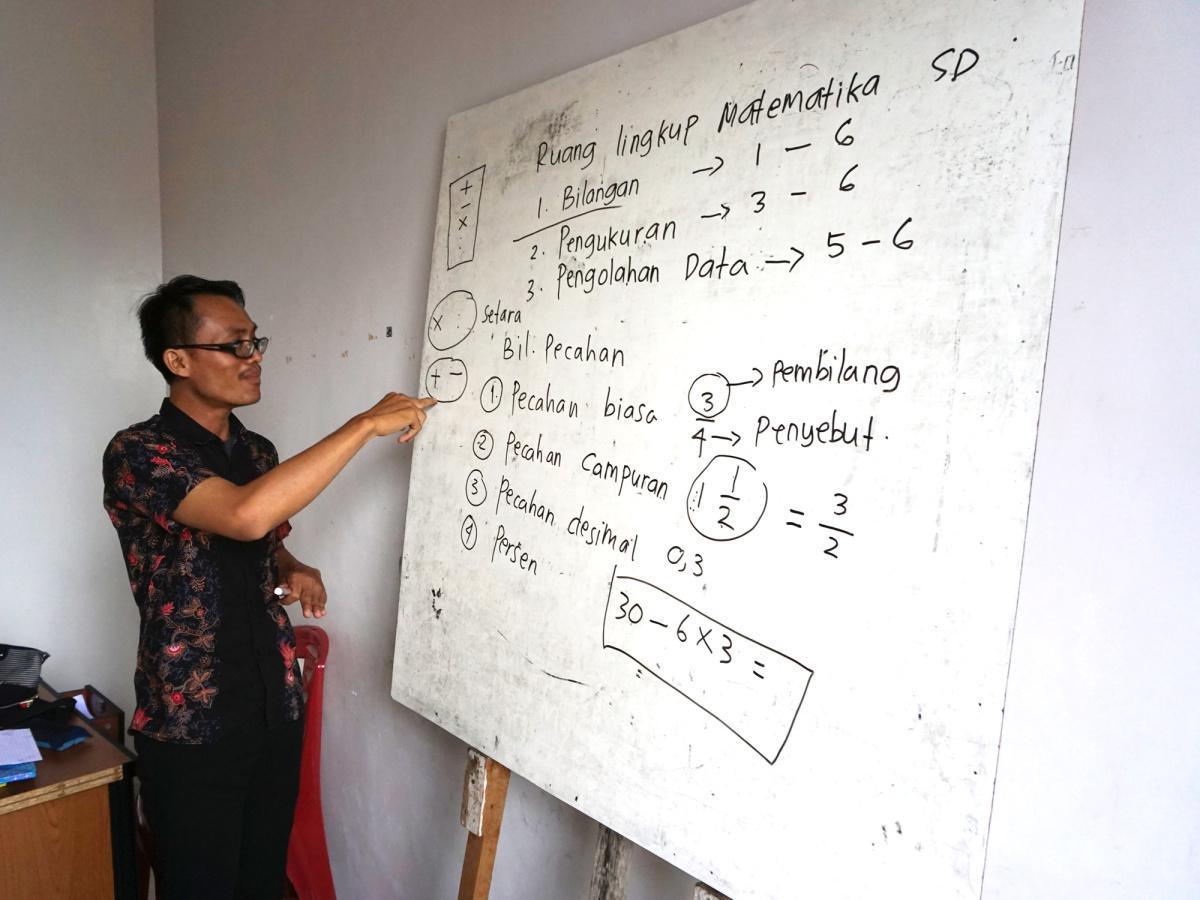 Ruang lingkup Matematika SD
1. Bilangan → 1 - 6
2. Pengukuran → 3 - 6
3. Pengolahan Data → 5 - 6
+
-
x
:
x : setara
+ -
Bil. Pecahan
① Pecahan biasa 3/4
3 → Pembilang
4 → Penyebut.
② Pecahan Campuran 1 1/2 = 3/2
③ Pecahan desimal 0,3
④ Persen
30 - 6 x 3 =